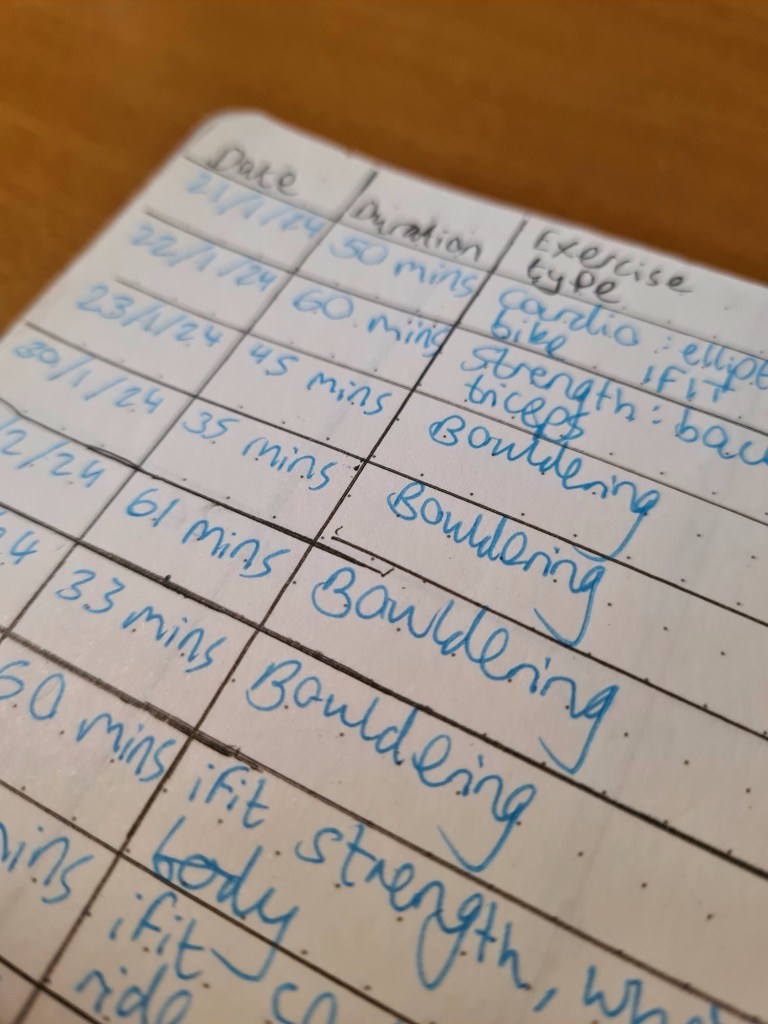 Date Duration Exercise type
21/1/24 50 mins cardio: ellipt
bike iFIT
22/1/24 60 mins Strength: bac
triceps
23/1/24 45 mins Bouldering
30/1/24 35 mins Bouldering
/2/24 61 mins Bouldering
24 33 mins Bouldering
60 mins ifit strength, who
body
mins ifit
ride